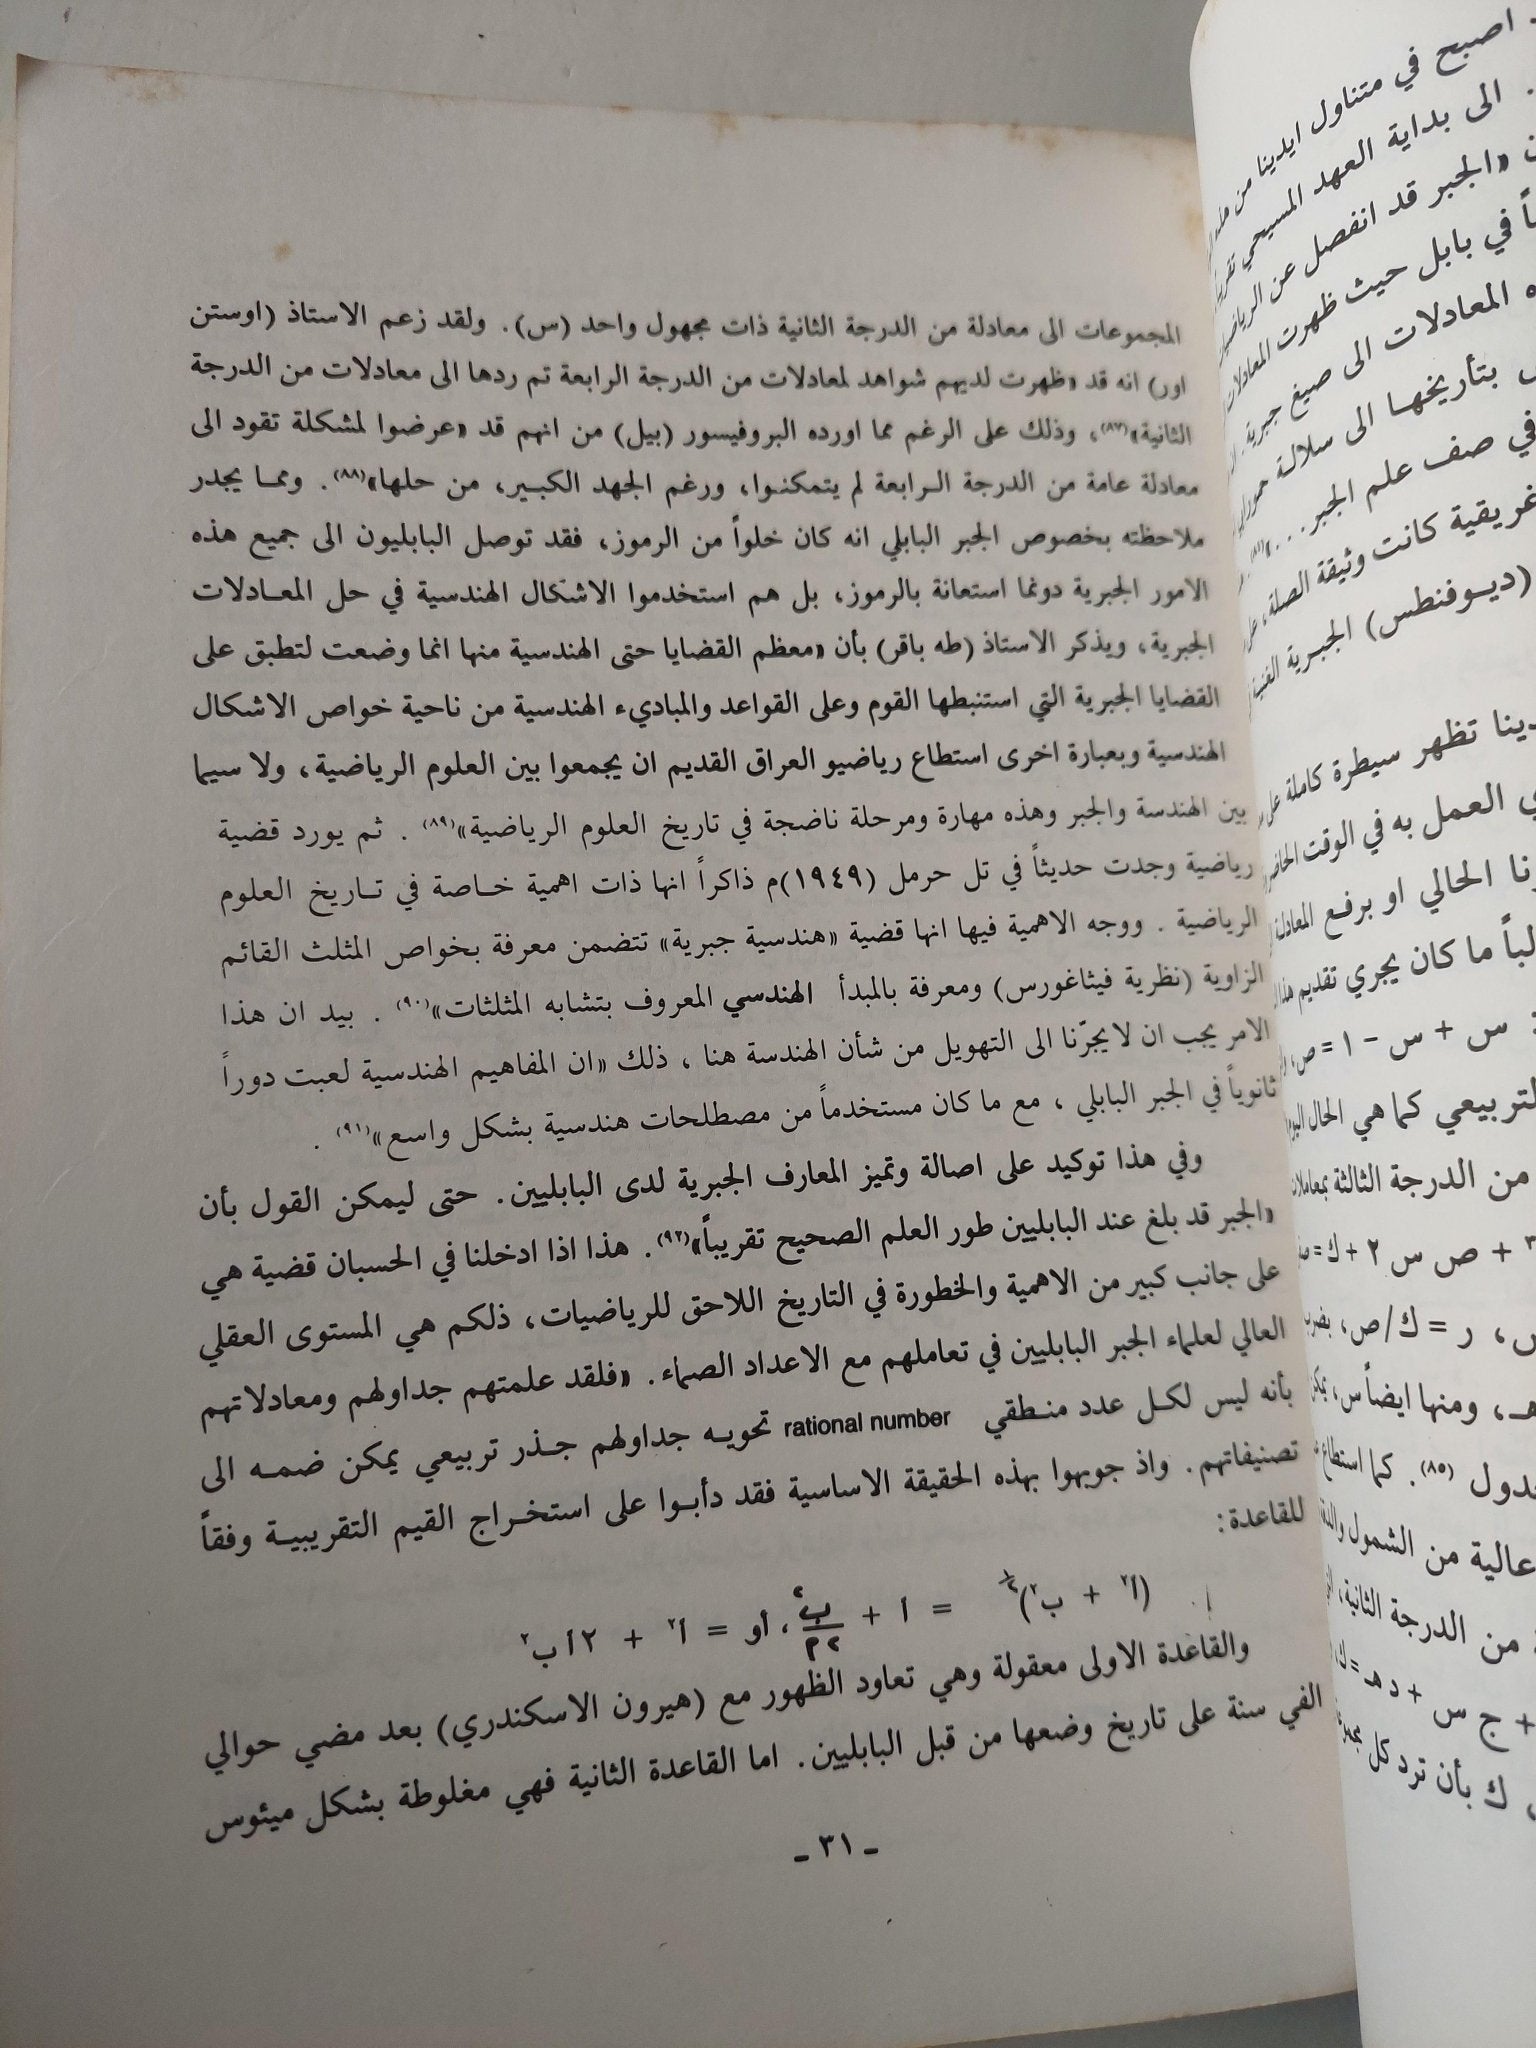 المجموعات الى معادلة من الدرجة الثانية ذات مجهول واحد (س). ولقد زعم الاستاذ (اوستن
اور) انه قد «ظهرت لديهم شواهد لمعادلات من الدرجة الرابعة تم ردها الى معادلات من الدرجة
الثانية»(٨٧)، وذلك على الرغم مما اورده البروفيسور (بيل) من انهم قد «عرضوا لمشكلة تقود الى
معادلة عامة من الدرجة الرابعة لم يتمكنوا، ورغم الجهد الكبير، من حلها»(٨٨). ومما يجدر
ملاحظته بخصوص الجبر البابلي انه كان خلواً من الرموز، فقد توصل البابليون الى جميع هذه
الامور الجبرية دونما استعانة بالرموز، بل هم استخدموا الاشكال الهندسية في حل المعادلات
الجبرية، ويذكر الاستاذ (طه باقر) بأن «معظم القضايا حتى الهندسية منها انما وضعت لتطبق على
القضايا الجبرية التي استنبطها القوم وعلى القواعد والمباديء الهندسية من ناحية خواص الاشكال
الهندسية وبعبارة اخرى استطاع رياضيو العراق القديم ان يجمعوا بين العلوم الرياضية، ولا سيما
بين الهندسة والجبر وهذه مهارة ومرحلة ناضجة في تاريخ العلوم الرياضية»(٨٩). ثم يورد قضية
رياضية وجدت حديثاً في تل حرمل (١٩٤٩)م ذاكراً انها ذات اهمية خاصة في تاريخ العلوم
الرياضية. ووجه الاهمية فيها انها قضية «هندسية جبرية» تتضمن معرفة بخواص المثلث القائم
الزاوية (نظرية فيثاغورس) ومعرفة بالمبدأ الهندسي المعروف بتشابه المثلثات»(٩٠). بيد ان هذا
الامر يجب ان لا يجرّنا الى التهويل من شأن الهندسة هنا، ذلك «ان المفاهيم الهندسية لعبت دوراً
ثانوياً في الجبر البابلي، مع ما كان مستخدماً من مصطلحات هندسية بشكل واسع»(٩١).
وفي هذا توكيد على اصالة وتميز المعارف الجبرية لدى البابليين. حتى ليمكن القول بأن
«الجبر قد بلغ عند البابليين طور العلم الصحيح تقريباً»(٩٢). هذا اذا ادخلنا في الحسبان قضية هي
على جانب كبير من الاهمية والخطورة في التاريخ اللاحق للرياضيات، ذلكم هي المستوى العقلي
العالي لعلماء الجبر البابليين في تعاملهم مع الاعداد الصماء. «فلقد علمتهم جداولهم ومعادلاتهم
بأنه ليس لكل عدد منطقي rational number تحويه جداولهم جذر تربيعي يمكن ضمه الى
تصنيفاتهم. واذ جوبهوا بهذه الحقيقة الاساسية فقد دأبوا على استخراج القيم التقريبية وفقاً
للقاعدة:
(أ٢ + ب٢)١/٢ = أ + ب٢/٢م، أو = أ٢ + ٢أب٢
والقاعدة الاولى معقولة وهي تعاود الظهور مع (هيرون الاسكندري) بعد مضي حوالي
الفي سنة على تاريخ وضعها من قبل البابليين. اما القاعدة الثانية فهي مغلوطة بشكل ميئوس
- ٣١ -
اصبح في متناول ايدينا من
الى بداية العهد المسيحي
«الجبر قد انفصل عن
في بابل حيث ظهرت المعادلات
المعادلات الى صيغ جبرية
بتأريخها الى سلالة
في صف علم الجبر...»
كانت وثيقة الصلة
(ديوفنطس) الجبرية
تظهر سيطرة كاملة على
العمل به في الوقت
الحالي او برفع المعادلة
ما كان يجري تقديم
س + س - ١ = ص،
كما هي الحال اليوم
من الدرجة الثالثة
+ ص س ٢ + ك =
ر = ك/ص،
ومنها ايضاً س،
(٨٥). كما استطاع
عالية من الشمول
من الدرجة الثانية،
+ ج س + د هـ = ك
ك بأن ترد كل